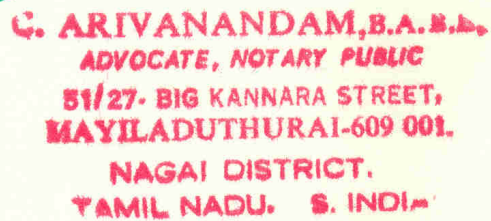 C. ARIVANANDAM, B.A.B.L.
ADVOCATE, NOTARY PUBLIC
51/27- BIG KANNARA STREET,
MAYILADUTHURAI-609 001.
NAGAI DISTRICT.
TAMIL NADU. S. INDIA